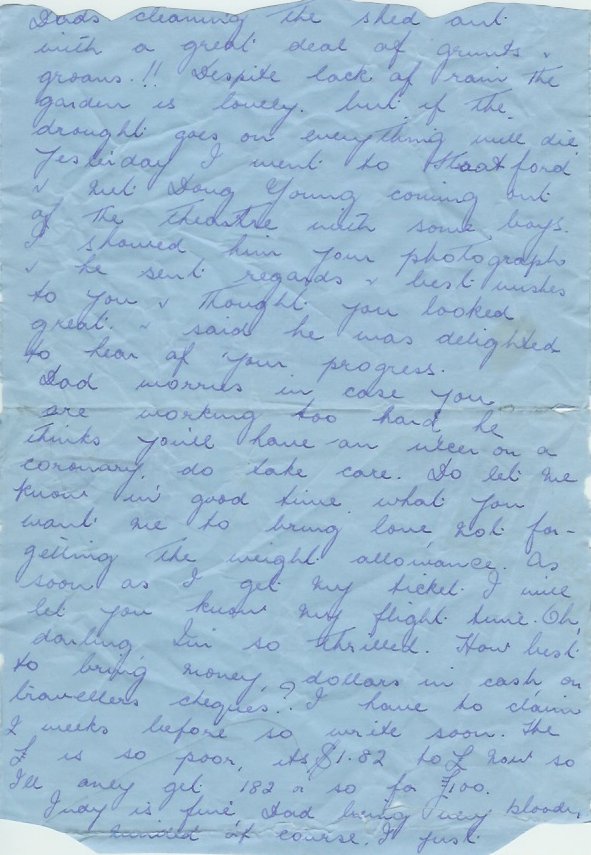 Dads cleaning the shed out
with a great deal of grunts &
groans.!! Despite lack of rain the
garden is lovely. but if the
drought goes on everything will die
Yesterday I went to Stratford
& met Doug Young coming out
of the theatre with some boys.
I showed him your photograph
& he sent regards & best wishes
to you & thought you looked
great. & said he was delighted
to hear of your progress.
Dad worries in case you
are working too hard, he
thinks you'll have an ulcer or a
coronary, do take care. Do let me
know in good time what you
want me to bring love not for-
getting the weight allowance. As
soon as I get my ticket I will
let you know my flight time. Oh,
darling I'm so thrilled. How best
to bring money, dollars in cash, or
travellers cheques? I have to claim
2 weeks before so write soon. The
£ is so poor, its $1.82 to £ now so
I'll only get 182 or so for £100.
Judy is fine, Dad being very bloody
minded of course. I just